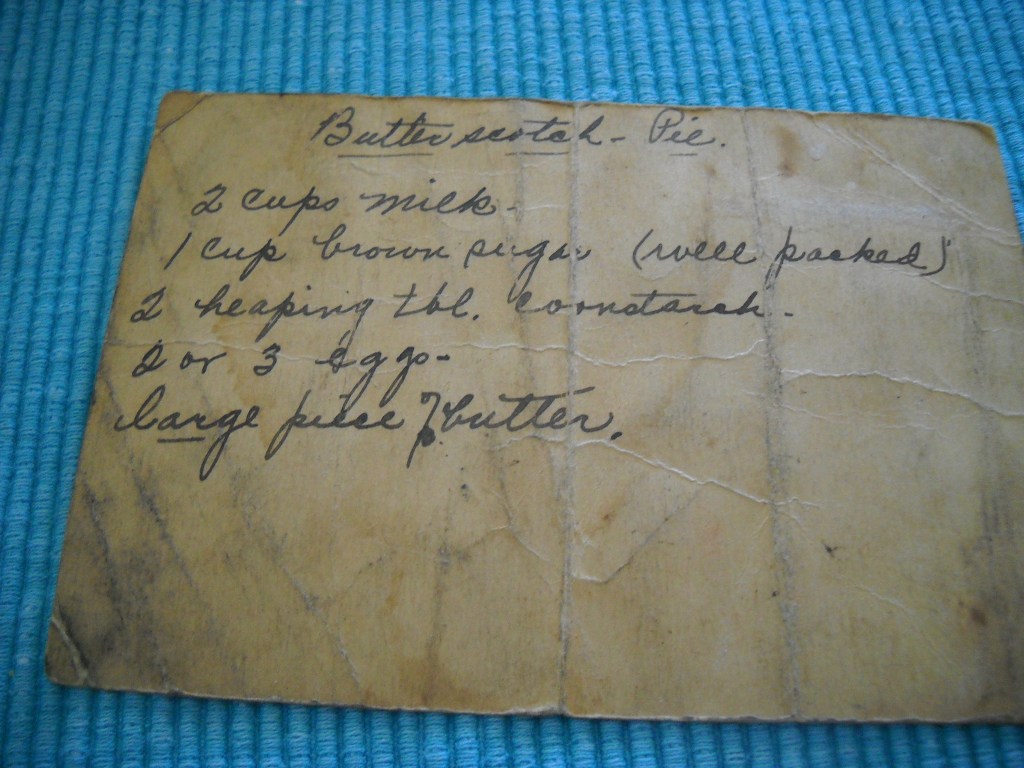 Butterscotch - Pie.
2 cups milk -
1 cup brown sugar (well packed)
2 heaping tbl. cornstarch -
2 or 3 eggs -
large piece of butter.